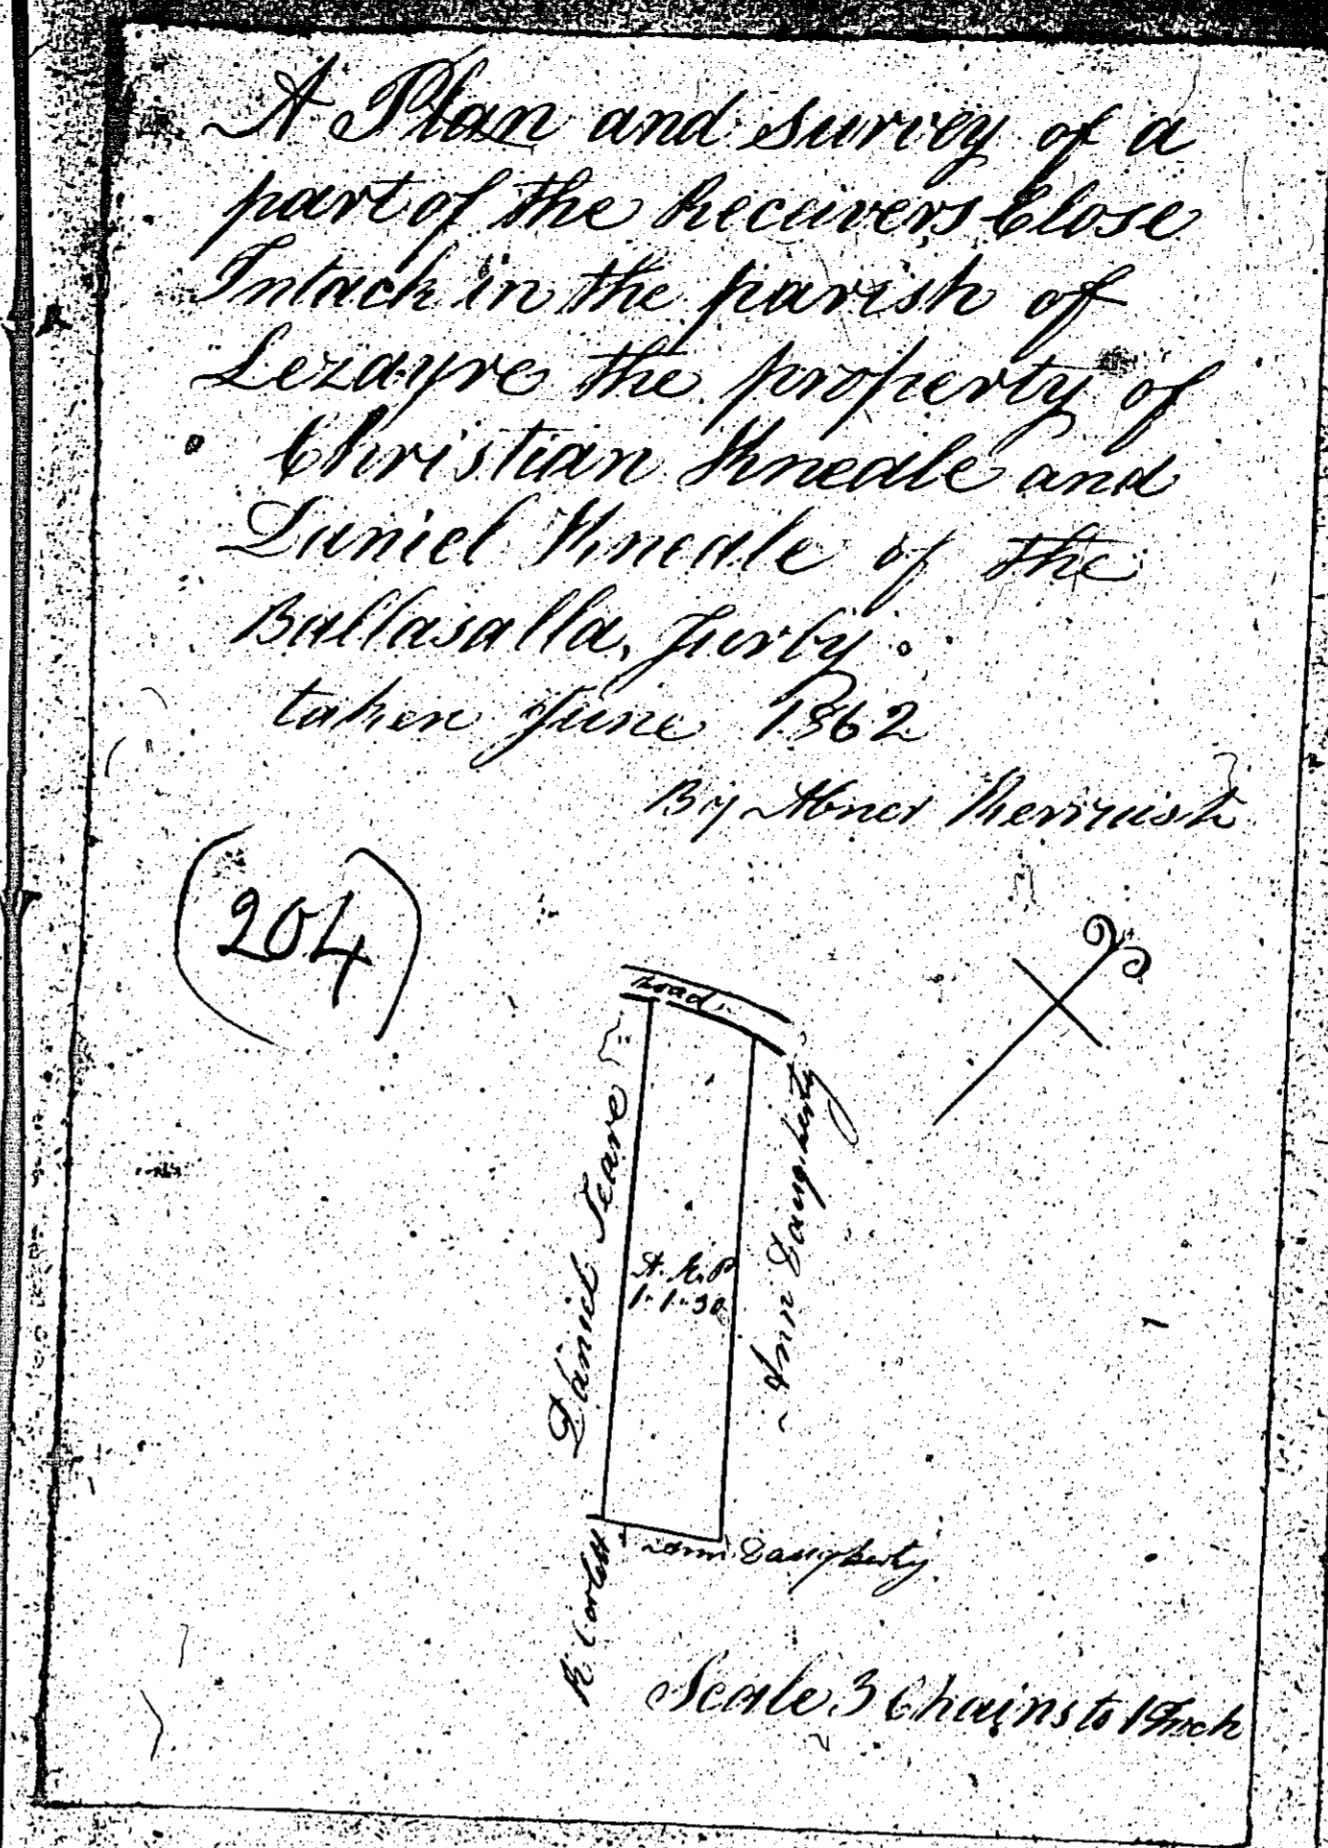 A Plan and Survey of a
part of the Receivers Close
Intack in the parish of
Lezayre the property of
Christian Kneale and
Daniel Kneale of the
Ballasalla, Jurby.
taken June 1862
By Abner Kerruish
(204)
Road.
Daniel Teare
A. R. P
1. 1. 30
Ann Daugherty
Ann Daugherty
R Corlett
Scale 3 Chains to 1 Inch